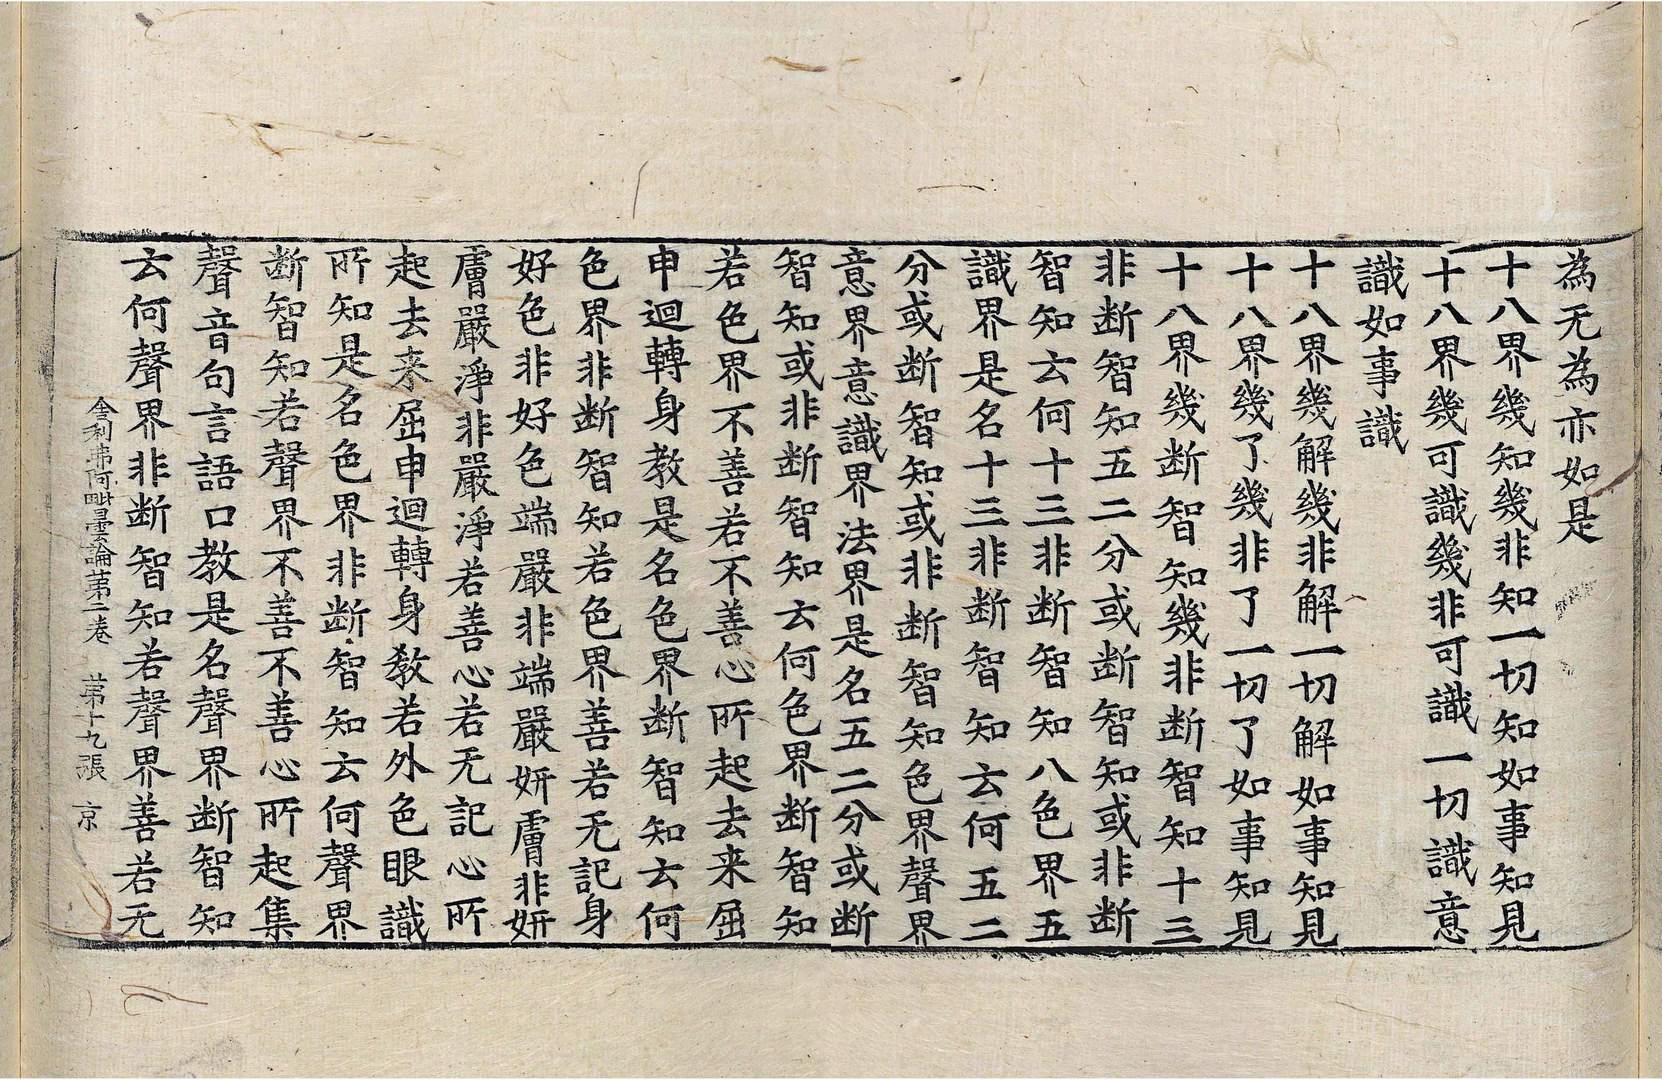 為无為亦如是
十八界幾知幾非知一切知如事知見
十八界幾可識幾非可識一切識意
識如事識
十八界幾解幾非解一切解如事知見
十八界幾了幾非了一切了如事知見
十八界幾断智知幾非断智知十三
非断智知五二分或断智知或非断
智知云何十三非断智知八色界五
識界是名十三非断智知云何五二
分或断智知或非断智知色界聲界
意界意識界法界是名五二分或断
智知或非断智知云何色界断智知
若色界不善若不善心所起去来屈
申迴轉身教是名色界断智知云何
色界非断智知若色界善若无記身
好色非好色端嚴非端嚴妍膚非妍
膚嚴淨非嚴淨若善心若无記心所
起去来屈申迴轉身教若外色眼識
所知是名色界非断智知云何聲界
断智知若聲界不善若不善心所起集
聲音句言語口教是名聲界断智知
云何聲界非断智知若聲界善若无
舍利弗阿毗曇論苐二卷 苐十九張 京